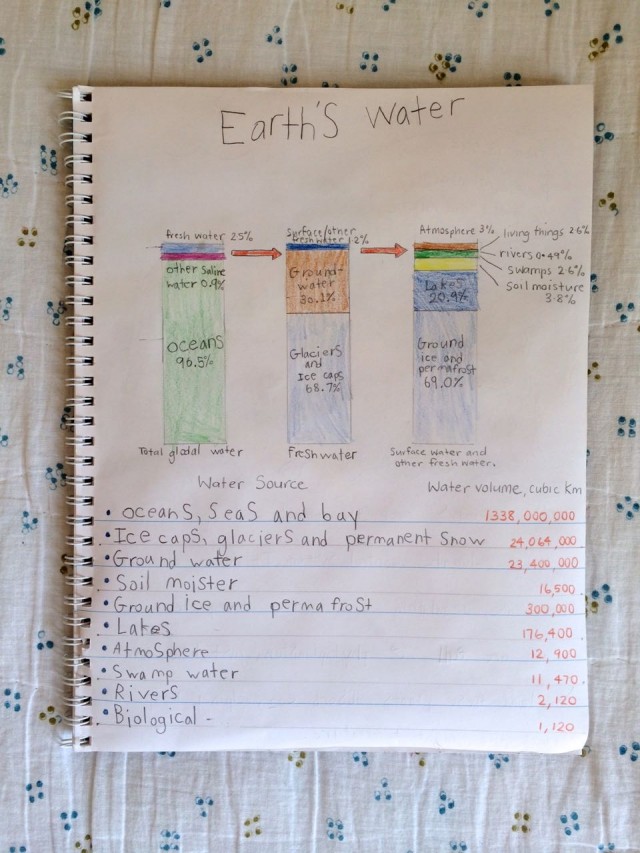 Earth's Water
fresh water 25%
other Saline
water 0.9%
oceans
96.5%
Total glodal water
Surface/other
fresh water 1.2%
Ground-
water
30.1%
Glaciers
and
Ice caps
68.7%
Freshwater
Atmosphere 3%
living things 26%
rivers 0.49%
swamps 2.6%
soil moisture
3.8%
Lakes
20.9%
Ground
ice and
permafrost
69.0%
Surface water and
other fresh water.
Water Source Water volume, cubic Km
• oceans, seas and bay 1338,000,000
• Ice caps, glaciers and permanent snow 24,064,000
• Ground water 23,400,000
• Soil moister 16,500
• Ground ice and perma frost 300,000
• Lakes 176,400
• Atmosphere 12,900
• Swamp water 11,470
• Rivers 2,120
• Biological - 1,120